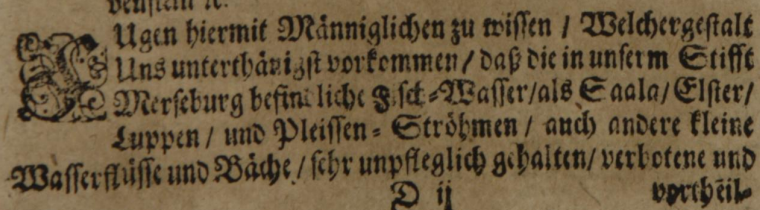 FUgen hiermit Männiglichen zu wissen / Welchergestalt
Uns unterthänigst vorkommen / daß die in unserm Stifft
Merseburg befindliche Fisch-Wasser/als Saala/ Elster/
Luppen / und Pleissen-Ströhmen / auch andere kleine
Wasserflüsse und Bäche / sehr unpfleglich gehalten/ verbotene und
D ij vortheil-